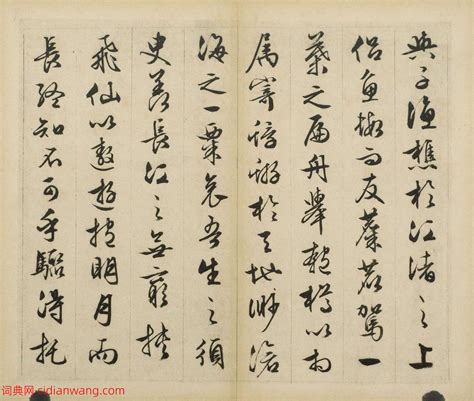 與子漁樵於江渚之上
侶魚蝦而友麋鹿駕一
葉之扁舟舉匏樽以相
屬寄蜉蝣於天地渺滄
海之一粟哀吾生之須
臾羨長江之無窮挾
飛仙以遨遊抱明月而
長終知不可乎驟得托
词典网:cidianwang.com